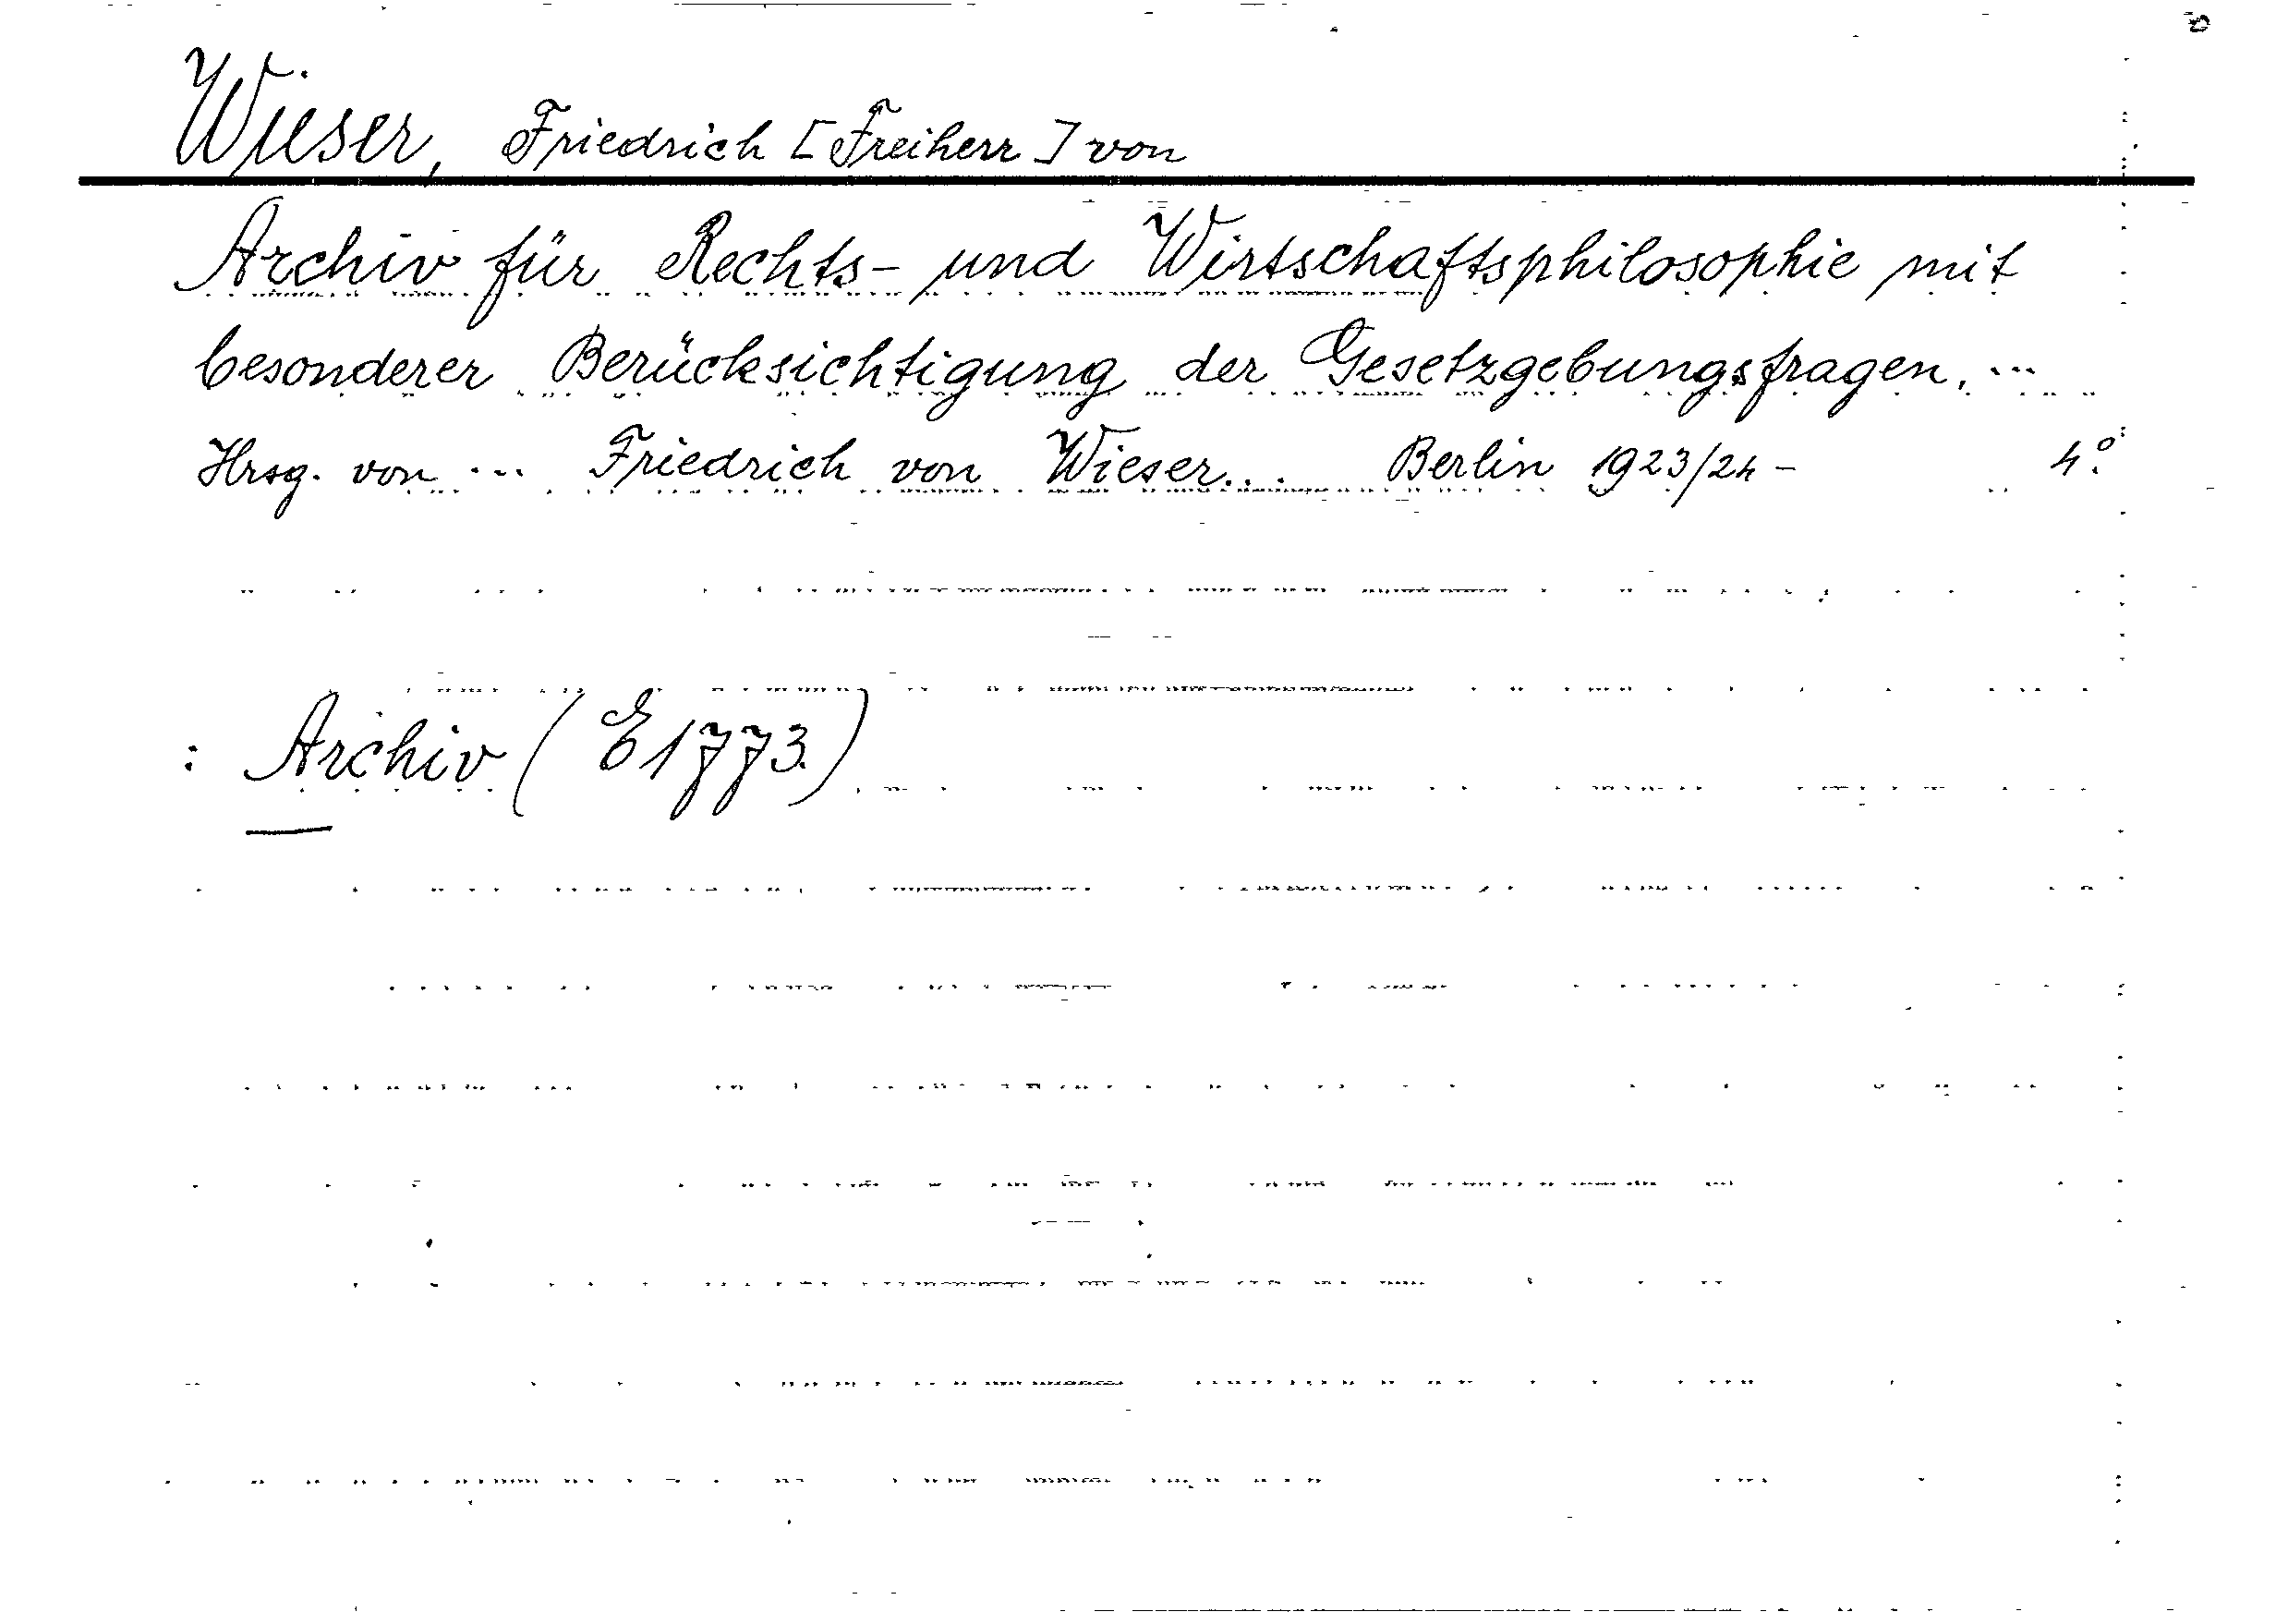 Wieser, Friedrich [Freiherr] von
Archiv für Rechts- und Wirtschaftsphilosophie mit
besonderer Berücksichtigung der Gesetzgebungsfragen. ...
Hrsg. von ... Friedrich von Wieser... Berlin 1923/24- 4°.
: Archiv (E1773.)